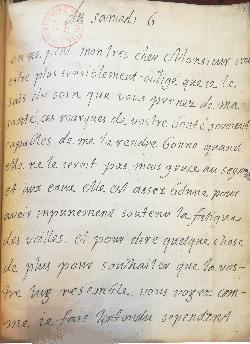 du samedi 6
on ne peut mon tres cher Monsieur vous
estre plus sensiblement obligé que je le
suis du soin que vous prenez de ma
santé, ces marques de vostre bonté seroient
capables de me la rendre bonne quand
elle ne le seroit pas mais grace au
et aux eaux elle est assez bonne pour
avoir impunement soutenu la fatigue
des veilles. et pour dire quelque chose
de plus pour souhaitter que la vos-
tre luy resemble, vous voyez com-
me je fais cependent